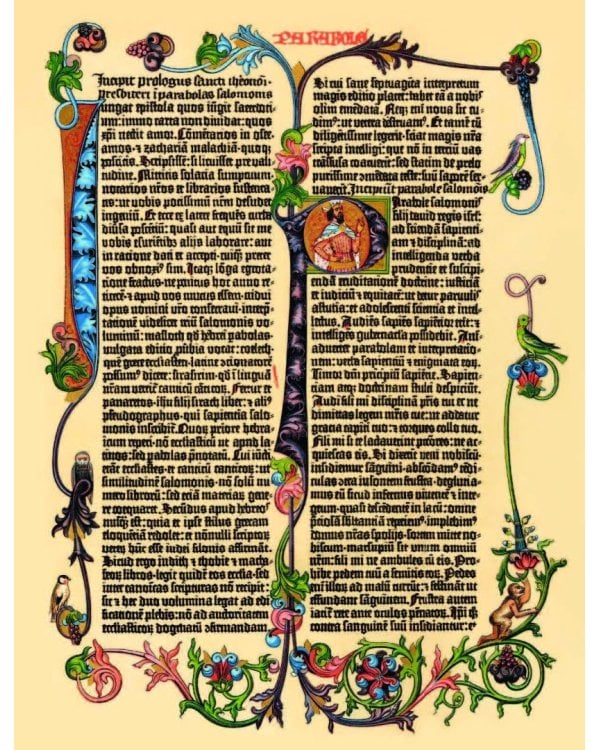 PARABOLE
Incipit prologus sancti iheronimi
presbiteri i parabolas salomonis
Iungat epistola quos iungit sacerdoti-
um: immo carta non dividat: quos
xpi nectit amor. Cōmētarios in osee-
amos ⁊ zachariam malachiā-quoqʒ
poscitis. Scripsissē: si licuisset pre vali-
tudine. Mittitis solacia sumptuum-
notarios nr̄os et librarios sustenta-
tis: ut vobis potissimū nr̄m desudet
ingeniū. Et ecce ex latere freques turba
diūsa poscētiū: quasi aut equū sit me
vobis esuriētibʒ aliis laborare: aut
in ratione dati et accepti-cuiqʒ preter
vos obnoxiꝰ sim. Itaqʒ lōga egrota-
tione fractus-ne penitus hoc anno re-
ticerē-⁊ apud vos mutus essem-tridui
opus nomini vr̄o consecravi-interp̄-
tatione videlicet triū salomonis vo-
luminū: masloth qd̄ hebrei pabolas-
vulgata editio pūbia vocat: coeleth-
que grece ecclesiasten-latine cōcionatorē
possumꝰ dicere: sirasirim-qd̄ i linguā
nr̄am vertit̄ canticū cāticoꝝ. Fertur et
panaretos-ihu filii sirach liber: ⁊ aliꝰ
pseudographus-qui sapientia salo-
monis inscribit̄. Quoꝝ priorē hebra-
icum reperi-nō ecclesiasticū ut apud la-
tinos: sed pabolas p̄notatū. Cui iūcti
erāt ecclesiastes-et canticū canticoꝝ: ut
similitudinē salomonis-nō solū nu-
mero libroꝝ: sed etiā materiaꝝ gene-
re coequaret. Secūdus apud hebreos
nusqʒ est: quia et ipse stilus grecam
eloquētiā redolet: et nōnulli scriptoꝝ
veteꝝ hūc esse iudei filonis affirmāt.
Sicud ergo iudith ⁊ thobie ⁊ macha-
beoꝝ libros-legit quidē eos ecclia-sed
inter canonicas scripturas nō recipit:
sic ⁊ hec duo volumina legat ad edi-
ficationē plebis: nō ad auctoritatem
ecclesiasticoꝝ dogmatū ɔfirmandam.
Si cui sane septuagīta interpretum
magis editio placet: habet eā a nobis
olim emēdatā. Neqʒ eni nova sic cu-
dimꝰ: ut vetera destruamꝰ. Et tamē cū
diligentissime legerit-sciat magis nr̄a
scripta intelligi: que nō in terciū vas
trāsfusa coacuerit: sed statim de prelo
purissime ɔmēdata teste: suū saporē ser-
vaverit. Incipiunt parabole salomonis
Parabole salomonis
filii david regis isrl̄:
ad sciendā sapienti-
am ⁊ disciplinā: ad
intelligenda verba
prudentie et suscipi-
endā eruditationē doctrine: iusticiā
et iudiciū ⁊ equitatē: ut detur parvulis
astutia: et adolescenti scientia et intel-
lectus. Audiēs sapiēs sapiētior erit: ⁊
intelligēs gubernacla possidebit. Ani-
madvertet parabolam et interpretatio-
nem: verba sapientiū ⁊ enigmata eoꝝ.
Timor dnī principiū sapiētie. Sapien-
ciam atqʒ doctrinam stulti despiciūt.
Audi fili mi disciplinā pr̄is tui et ne
dimittas legem mr̄is tue: ut addatur
gracia capiti tuo: ⁊ torques collo tuo.
Fili mi si te lactaverint pctōres: ne ac-
quiescas eis. Si dixerīt veni nobiscū-
insidiemur sāguini-abscōdamꝰ tēdi-
culas ɔtra insontem frustra-deglutia-
mus eū sicud infernus viventē ⁊ inte-
grum-quasi descēdentē in lacū: omnē
p̄ciosā substanciā reperiemꝰ-implebimꝰ
domus nr̄as spoliis-sortem mitte no-
biscum-marsupiū sit unum omniū
nr̄m: fili mi ne ambules cū eis. Pro-
hibe pedem tuū a semitis eoꝝ. Pedes
eni illoꝝ ad malū currūt: ⁊ festināt ut
effundant sanguinem. Frustra autem
iacitur rete ante oculos pēnatoꝝ. Ipī qʒ
contra sanguinē suū insidiantur: et